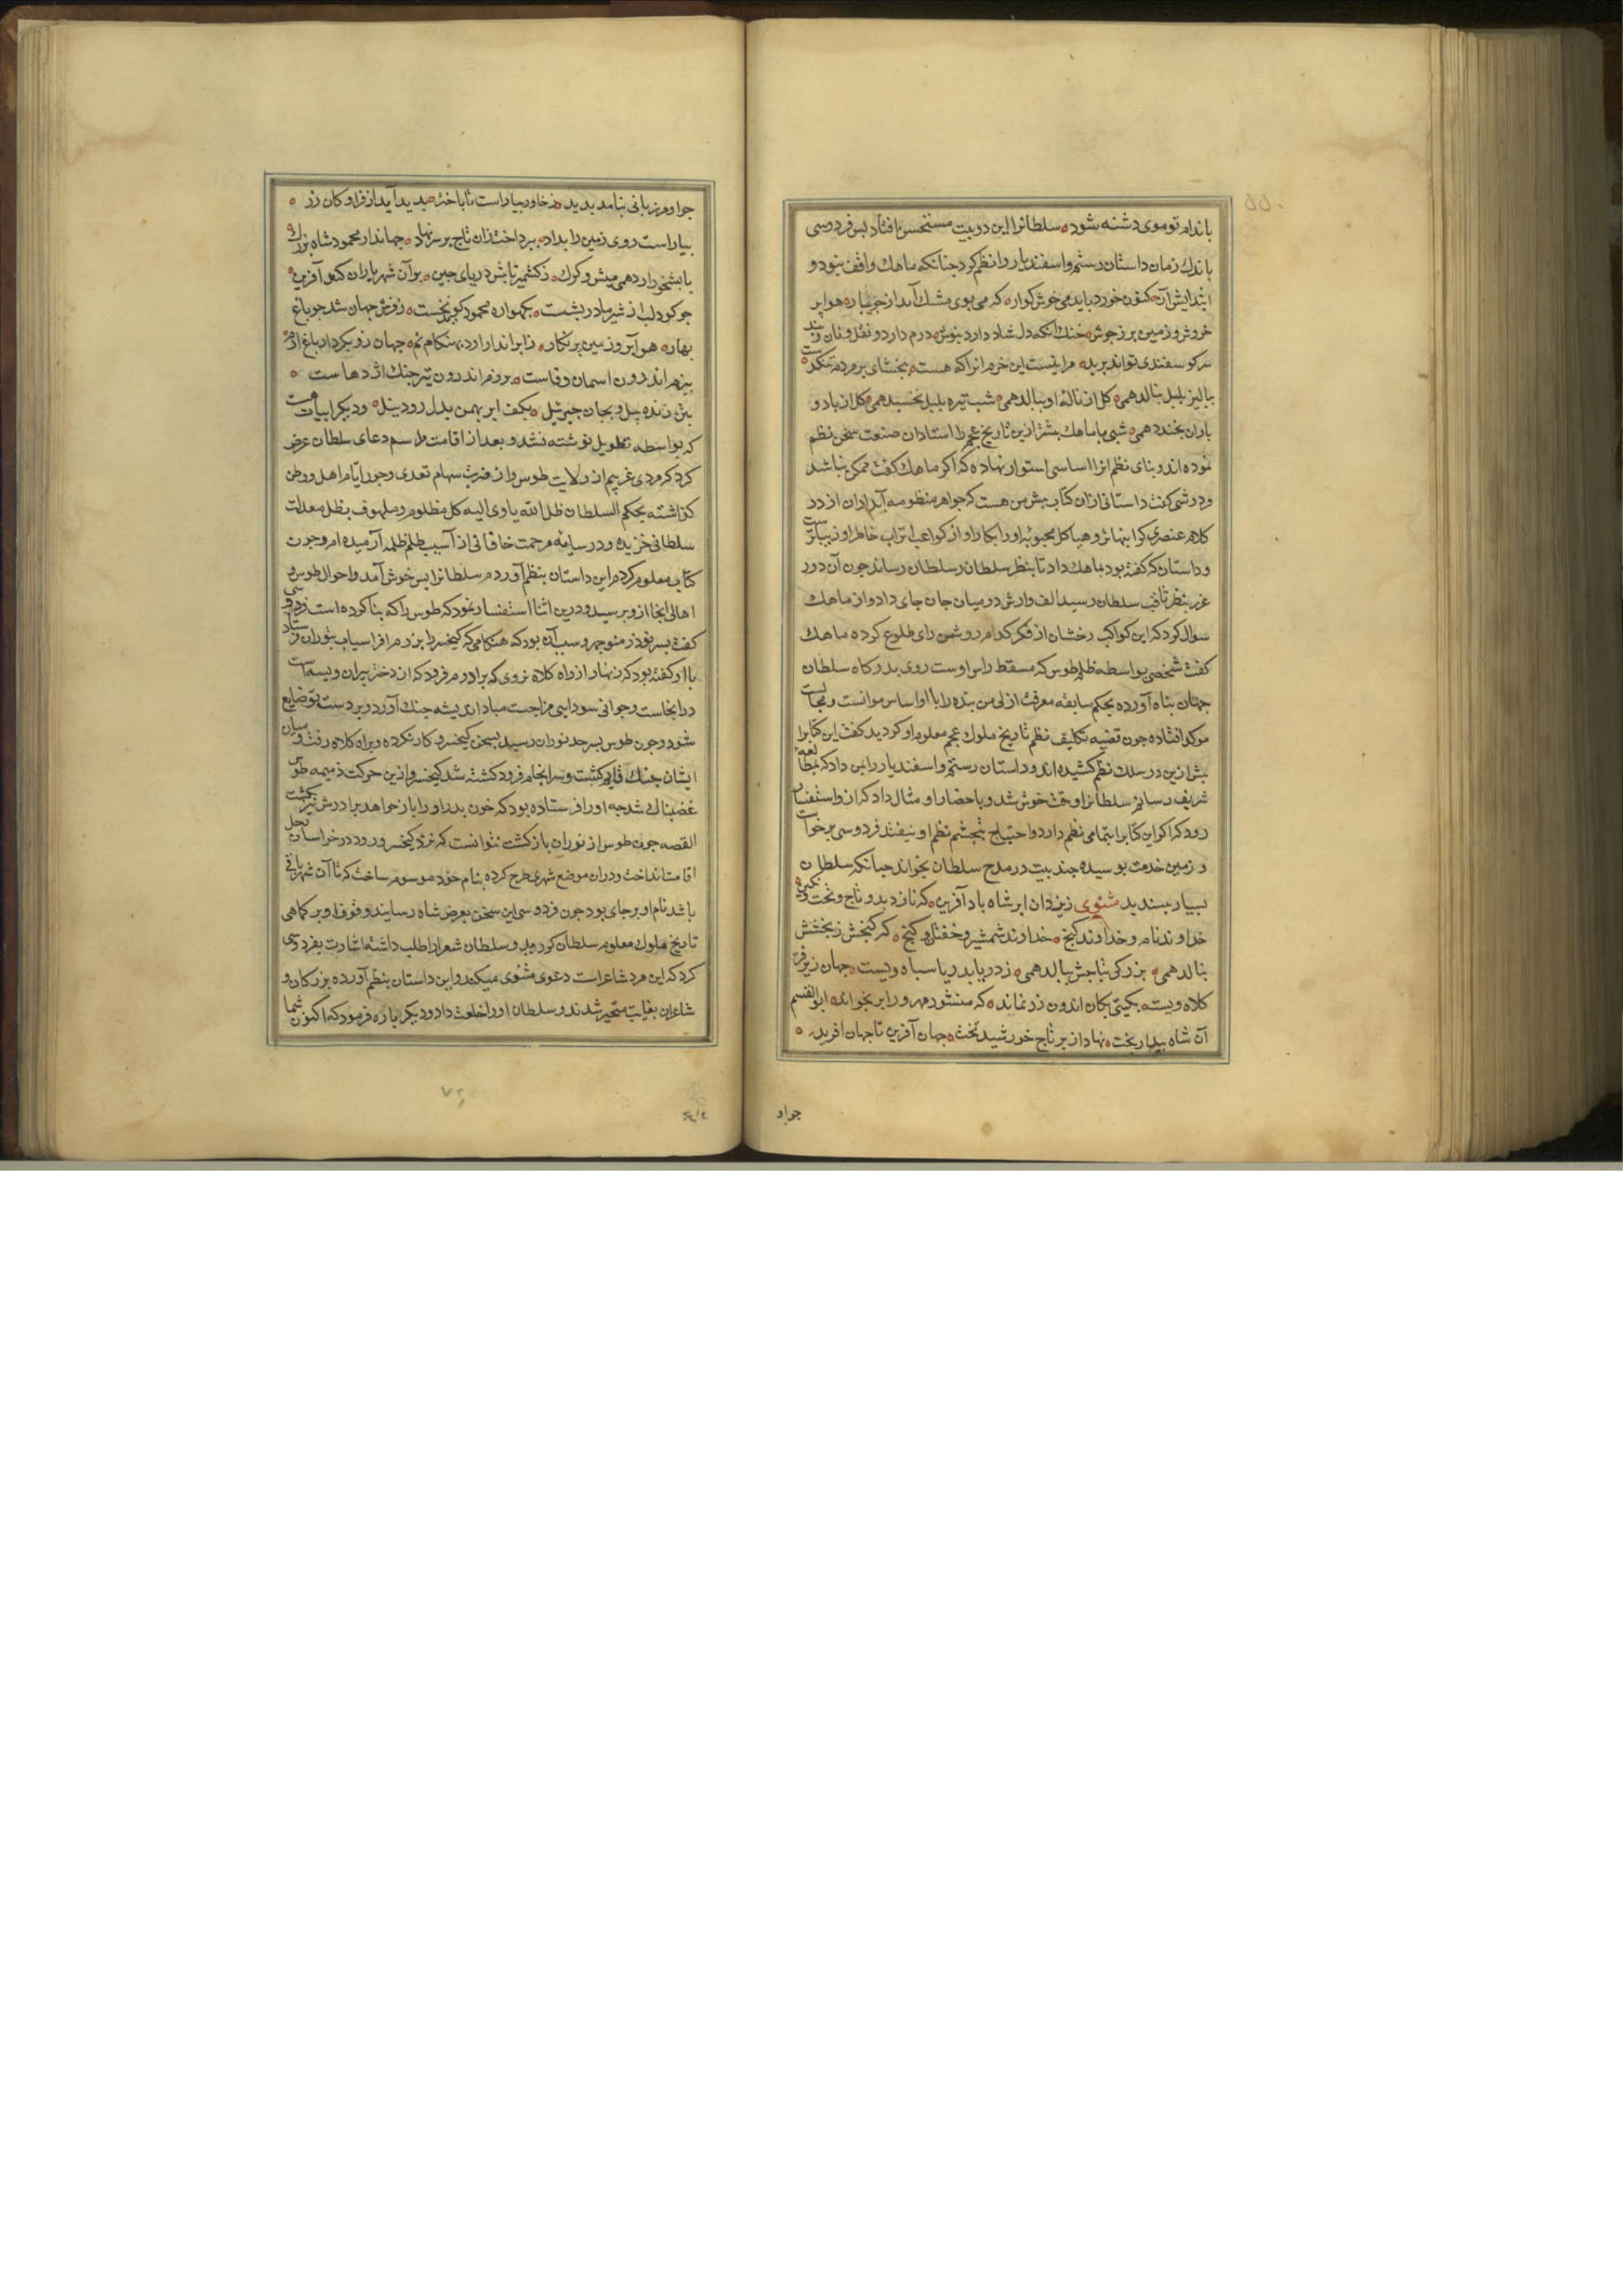 باندام تو موی دشنه شود سلطانرا این دو بیت مستحسن افتاد بس فردوسی
باندک زمان داستان رستم و اسفندیار را نظم کرد جنانکه ماهک واقف نبود و
ابتدایش آن کنون خورد باید می خوش کوار که می بوی مشک آید از جویبار هوا بر
خروش و زمین بر ز جوش خنک آنکه دل شاد دارد بنوش درم دارد و نقل و نان و نبید
سر کوسفندی تواند برید مرا نیست این خرم انرا که هست ببخشای بر مردم تنکدست
ببالیز بلبل بنالد همی کل از نالهٔ او ببالد همی شب تیره بلبل نخسبد همی کل از باد و
باران بخندد همی شبی با ماهک بیشتر ازین تاریخ عجم را استادان صنعت سخن نظم
نموده اند و بنای نظم انرا اساسی استوار نهاده که اکر ماهک کفت ممکن نباشد
فردوسی کفت داستانی ازان کتاب بیش من هست که جواهر منظومه آبداران از درد
کلام عنصری کرانبهاتر و هیاکل محبوبه او را ابکار او از کواعب اتراب خاطر او زیباترست
و داستان که کفته بود بماهک داد تا بنظر سلطان رساند جون آن درر
غرر بنظر ثاقب سلطان رسید الف وارش در میان جان جای داد و از ماهک
سوال کرد که این کواکب رخشان از فکر کدام روشن رای طلوع کرده ماهک
کفت شخصی بواسطه ظلم طوس که مسقط راس اوست روی بدرکاه سلطان
جهان بناه آورده بحکم سابقه معرفت ازلی من بنده را با او اساس موانست و مجالست
موکد افتاده جون قضیه تکلیف نظم تاریخ ملوک عجم معلوم او کردید کفت این کتابرا
بیش ازین در سلک نظم کشیده اند و داستان رستم و اسفندیار را بمن داد که بمطالعه
شریف رسانم سلطانرا وقت خوش شد و باحضار او مثال داد که ازو استفسار
رود که اکر این کتابرا بتمامی نظم دارد احتیاج بتجشم نظم او نیفتد فردوسی برخواست
و زمین خدمت بوسیده جند بیت در مدح سلطان بخواند جنانکه سلطان
بسیار بسندید مثنوی ز یزدان ابر شاه باد آفرین که نازد بدو تاج و تخت و نکین
خداوند نام و خداوند کنج خداوند شمشیر و خفتان و کنج که کنجش ز بخشش
بنالد همی بزرکی بتاجش ببالد همی ز دریا بدریا سباه ویست جهان زیر فر
کلاه ویست بکیتی بکان اندرون زر نماند که منشور مهر ورا بر نخواند ابوالقسم
آن شاه بیدار بخت نهاد از بر تاج خورشید تخت جهان آفرین تا جهان افرید
جو او
جو او مرزبانی نیامد بدید ز خاور بیاراست تا باختر بدید آید از فر او کان زر
بیاراست روی زمین را بداد ببرداخت زان تاج بر سر نهاد جهاندار محمود شاه بزرک
بابشخور ارد همی میش و کرک ز کشمیر تا بش دریای جین بر آن شهریاران کنند آفرین
جو کودک لب از شیر مادر بشست بکهواره محمود کوید نخست ز فرش جهان شد جو باغ
بهار هوا ابر و زمین بر نکار ز ابر اندر ارد بهنکام نم جهان زو بکردار باغ ارم
ببزم اندرون اسمان وفاست برزم اندرون تیز جنک اژدهاست
بتن زنده بیل و بجان جبرئیل بکف ابر بهمن بدل رود نیل و دیکر ابیات هست
که بواسطه تطویل نوشته نشد و بعد از اقامت مراسم دعای سلطان عرض
کرد که مردی غریبم از ولایت طوس و از ضرب سهام تعدی و جور ایام اهل و وطن
کذاشته بحکم السلطان ظل الله یاوی الیه کل مظلوم و ملهوف بظل معدلت
سلطانی خزیده و در سایه مرحمت خاقانی از آسیب ظلم ظلمه آرمیده ام و جون
کتاب معلوم کردم این داستان بنظم آوردم سلطانرا بس خوش آمد و احوال طوس و
اهالی انجا ازو برسید و درین اثنا استفسار نمود که طوس را که بنا کرده است فردوسی
کفت بسر نوذر منوجهر و سبب آن بود که هنکامی که کیخسرو را برزم افراسیاب بتوران فرستاد
با او کفته بود که زنهار از راه کلات نروی که برادرم فرود که از دختر بیران ویسه است
در انجاست و جوانی سودایی مزاجست مبادا اندیشه جنک آورد و بر دست تو ضایع
شود و جون طوس بسرحد توران رسید بسخن کیخسرو کار نکرده و براه کلات رفت و میان
ایشان جنک قایم کشت و سرانجام فرود کشته شد کیخسرو ازین حرکت ذمیمه طوس
غضبناک شد جه او را فرستاده بود که خون بدر او را باز خواهد برادرش نیز بکشت
القصه جون طوس از توران باز کشت نتوانست که نزد کیخسرو رود در خراسان رحل
اقامت انداخت و دران موضع شهری طرح کرده بنام خود موسوم ساخت که تا آن شهر باقی
باشد نام او بر جای بود جون فردوسی این سخن بعرض شاه رسانید وقوف او بر کماهی
تاریخ ملوک معلوم سلطان کردید و سلطان شعرا را طلب داشته اشارت بفردوسی
کرد که این مرد شاعرست دعوی مثنوی میکند و این داستان بنظم آورده بزرکان و
شاعران بغایت متحیر شدند و سلطان او را خلعت داد و دیکر باره فرمود که اکنون شما